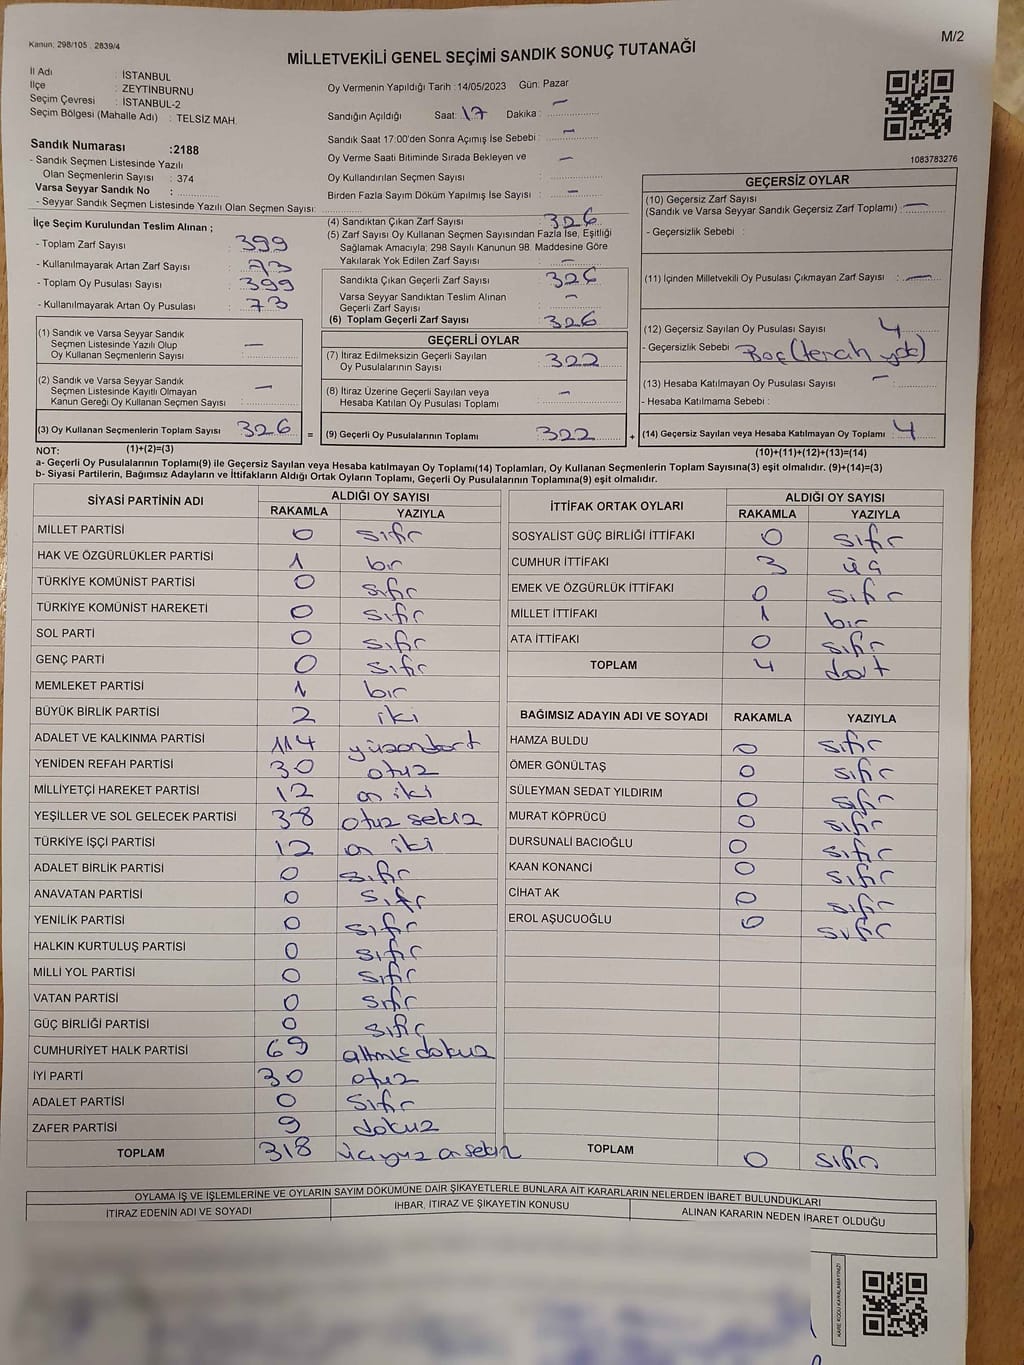 Kanun; 298/105 , 2839/4
M/2
MİLLETVEKİLİ GENEL SEÇİMİ SANDIK SONUÇ TUTANAĞI
İl Adı : İSTANBUL
İlçe : ZEYTİNBURNU
Seçim Çevresi : İSTANBUL-2
Seçim Bölgesi (Mahalle Adı) : TELSİZ MAH.
Oy Vermenin Yapıldığı Tarih :14/05/2023 Gün: Pazar
Sandığın Açıldığı Saat: 17 Dakika : —
Sandık Saat 17:00'den Sonra Açımış İse Sebebi : —
Oy Verme Saati Bitiminde Sırada Bekleyen ve —
Oy Kullandırılan Seçmen Sayısı :
Birden Fazla Sayım Döküm Yapılmış İse Sayısı : —
1083783276
Sandık Numarası :2188
- Sandık Seçmen Listesinde Yazılı
Olan Seçmenlerin Sayısı : 374
Varsa Seyyar Sandık No :
- Seyyar Sandık Seçmen Listesinde Yazılı Olan Seçmen Sayısı:
İlçe Seçim Kurulundan Teslim Alınan ;
- Toplam Zarf Sayısı : 399
- Kullanılmayarak Artan Zarf Sayısı : 73
- Toplam Oy Pusulası Sayısı : 399
- Kullanılmayarak Artan Oy Pusulası : 73
(1) Sandık ve Varsa Seyyar Sandık
Seçmen Listesinde Yazılı Olup
Oy Kullanan Seçmenlerin Sayısı : —
(2) Sandık ve Varsa Seyyar Sandık
Seçmen Listesinde Kayıtlı Olmayan
Kanun Gereği Oy Kullanan Seçmen Sayısı : —
(3) Oy Kullanan Seçmenlerin Toplam Sayısı 326
(1)+(2)=(3)
(4) Sandıktan Çıkan Zarf Sayısı : 326
(5) Zarf Sayısı Oy Kullanan Seçmen Sayısından Fazla İse, Eşitliği
Sağlamak Amacıyla; 298 Sayılı Kanunun 98. Maddesine Göre
Yakılarak Yok Edilen Zarf Sayısı : —
Sandıkta Çıkan Geçerli Zarf Sayısı : 326
Varsa Seyyar Sandıktan Teslim Alınan
Geçerli Zarf Sayısı : —
(6) Toplam Geçerli Zarf Sayısı : 326
GEÇERLİ OYLAR
(7) İtiraz Edilmeksizin Geçerli Sayılan
Oy Pusulalarının Sayısı : 322
(8) İtiraz Üzerine Geçerli Sayılan veya
Hesaba Katılan Oy Pusulası Toplamı : —
= (9) Geçerli Oy Pusulalarının Toplamı : 322
GEÇERSİZ OYLAR
(10) Geçersiz Zarf Sayısı
(Sandık ve Varsa Seyyar Sandık Geçersiz Zarf Toplamı) : —
- Geçersizlik Sebebi :
(11) İçinden Milletvekili Oy Pusulası Çıkmayan Zarf Sayısı : —
(12) Geçersiz Sayılan Oy Pusulası Sayısı : 4
- Geçersizlik Sebebi : Boş (tercih yok)
(13) Hesaba Katılmayan Oy Pusulası Sayısı : —
- Hesaba Katılmama Sebebi :
+ (14) Geçersiz Sayılan veya Hesaba Katılmayan Oy Toplamı : 4
(10)+(11)+(12)+(13)=(14)
NOT:
a- Geçerli Oy Pusulalarının Toplamı(9) ile Geçersiz Sayılan veya Hesaba katılmayan Oy Toplamı(14) Toplamları, Oy Kullanan Seçmenlerin Toplam Sayısına(3) eşit olmalıdır. (9)+(14)=(3)
b- Siyasi Partilerin, Bağımsız Adayların ve İttifakların Aldığı Ortak Oyların Toplamı, Geçerli Oy Pusulalarının Toplamına(9) eşit olmalıdır.
SİYASİ PARTİNİN ADI ALDIĞI OY SAYISI
RAKAMLA YAZIYLA
MİLLET PARTİSİ 0 sıfır
HAK VE ÖZGÜRLÜKLER PARTİSİ 1 bir
TÜRKİYE KOMÜNİST PARTİSİ 0 sıfır
TÜRKİYE KOMÜNİST HAREKETİ 0 sıfır
SOL PARTİ 0 sıfır
GENÇ PARTİ 0 sıfır
MEMLEKET PARTİSİ 1 bir
BÜYÜK BİRLİK PARTİSİ 2 iki
ADALET VE KALKINMA PARTİSİ 114 yüzondört
YENİDEN REFAH PARTİSİ 30 otuz
MİLLİYETÇİ HAREKET PARTİSİ 12 on iki
YEŞİLLER VE SOL GELECEK PARTİSİ 38 otuz sekiz
TÜRKİYE İŞÇİ PARTİSİ 12 on iki
ADALET BİRLİK PARTİSİ 0 sıfır
ANAVATAN PARTİSİ 0 sıfır
YENİLİK PARTİSİ 0 sıfır
HALKIN KURTULUŞ PARTİSİ 0 sıfır
MİLLİ YOL PARTİSİ 0 sıfır
VATAN PARTİSİ 0 sıfır
GÜÇ BİRLİĞİ PARTİSİ 0 sıfır
CUMHURİYET HALK PARTİSİ 69 altmış dokuz
İYİ PARTİ 30 otuz
ADALET PARTİSİ 0 sıfır
ZAFER PARTİSİ 9 dokuz
TOPLAM 318 üçyüz on sekiz
İTTİFAK ORTAK OYLARI ALDIĞI OY SAYISI
RAKAMLA YAZIYLA
SOSYALİST GÜÇ BİRLİĞİ İTTİFAKI 0 sıfır
CUMHUR İTTİFAKI 3 üç
EMEK VE ÖZGÜRLÜK İTTİFAKI 0 sıfır
MİLLET İTTİFAKI 1 bir
ATA İTTİFAKI 0 sıfır
TOPLAM 4 dört
BAĞIMSIZ ADAYIN ADI VE SOYADI RAKAMLA YAZIYLA
HAMZA BULDU 0 sıfır
ÖMER GÖNÜLTAŞ 0 sıfır
SÜLEYMAN SEDAT YILDIRIM 0 sıfır
MURAT KÖPRÜCÜ 0 sıfır
DURSUNALİ BACIOĞLU 0 sıfır
KAAN KONANCİ 0 sıfır
CİHAT AK 0 sıfır
EROL AŞUCUOĞLU 0 sıfır
TOPLAM 0 sıfır
OYLAMA İŞ VE İŞLEMLERİNE VE OYLARIN SAYIM DÖKÜMÜNE DAİR ŞİKAYETLERLE BUNLARA AİT KARARLARIN NELERDEN İBARET BULUNDUKLARI
İTİRAZ EDENİN ADI VE SOYADI İHBAR, İTİRAZ VE ŞİKAYETİN KONUSU ALINAN KARARIN NEDEN İBARET OLDUĞU
KARE KODU KARALAMAYINIZ!